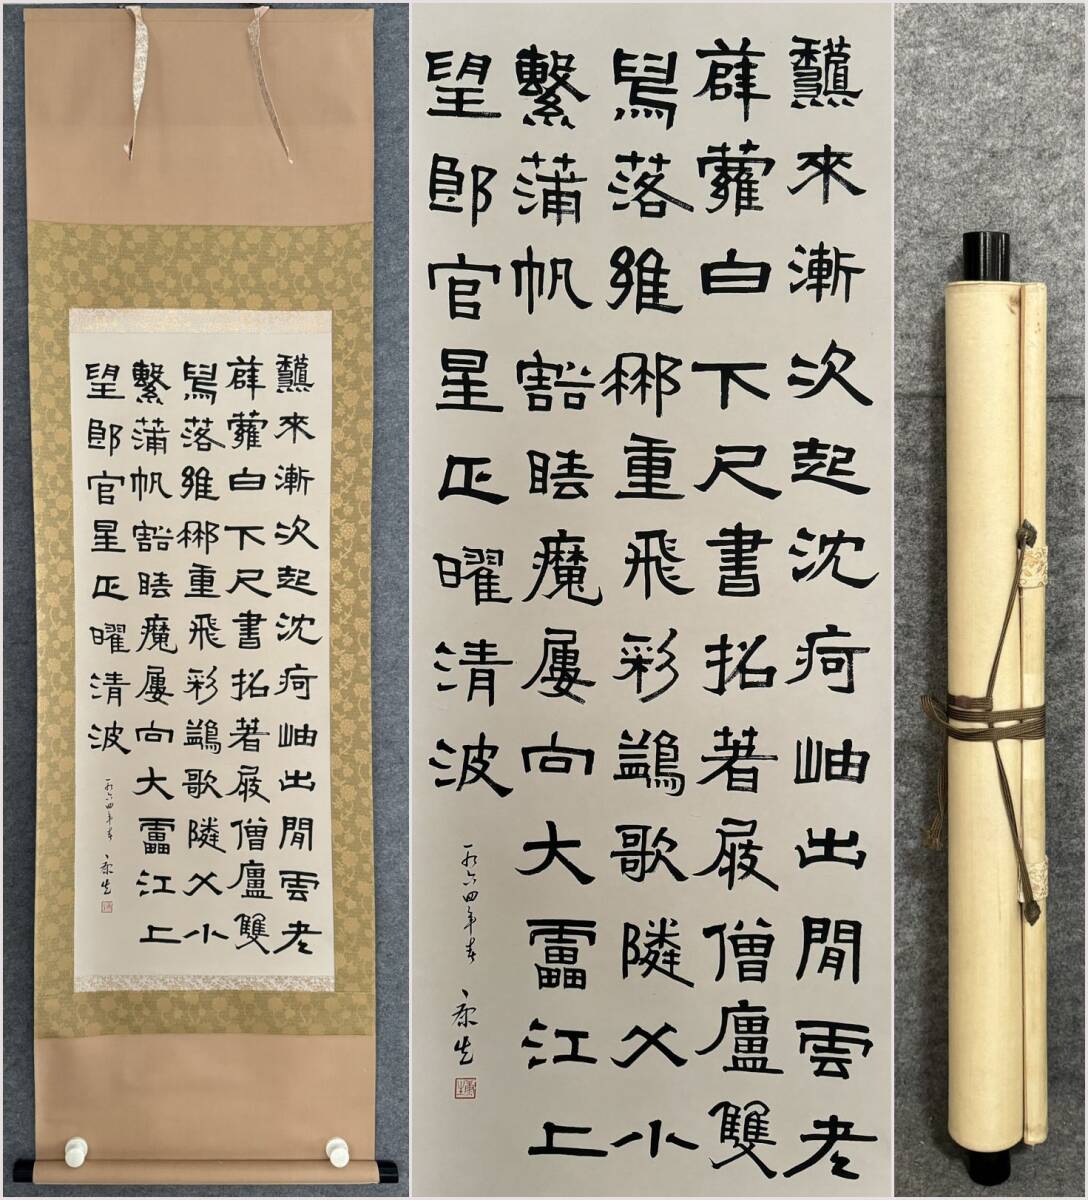 來漸次起沈疴岫出閒雲老
薜蘿白下尺書招著屐僧廬雙
鳧落維那重飛彩鷁歌隣乂小
繫蒲帆豁睡魔屢向大靁江上
望郎官星正曜清波
一九六四年春 康生